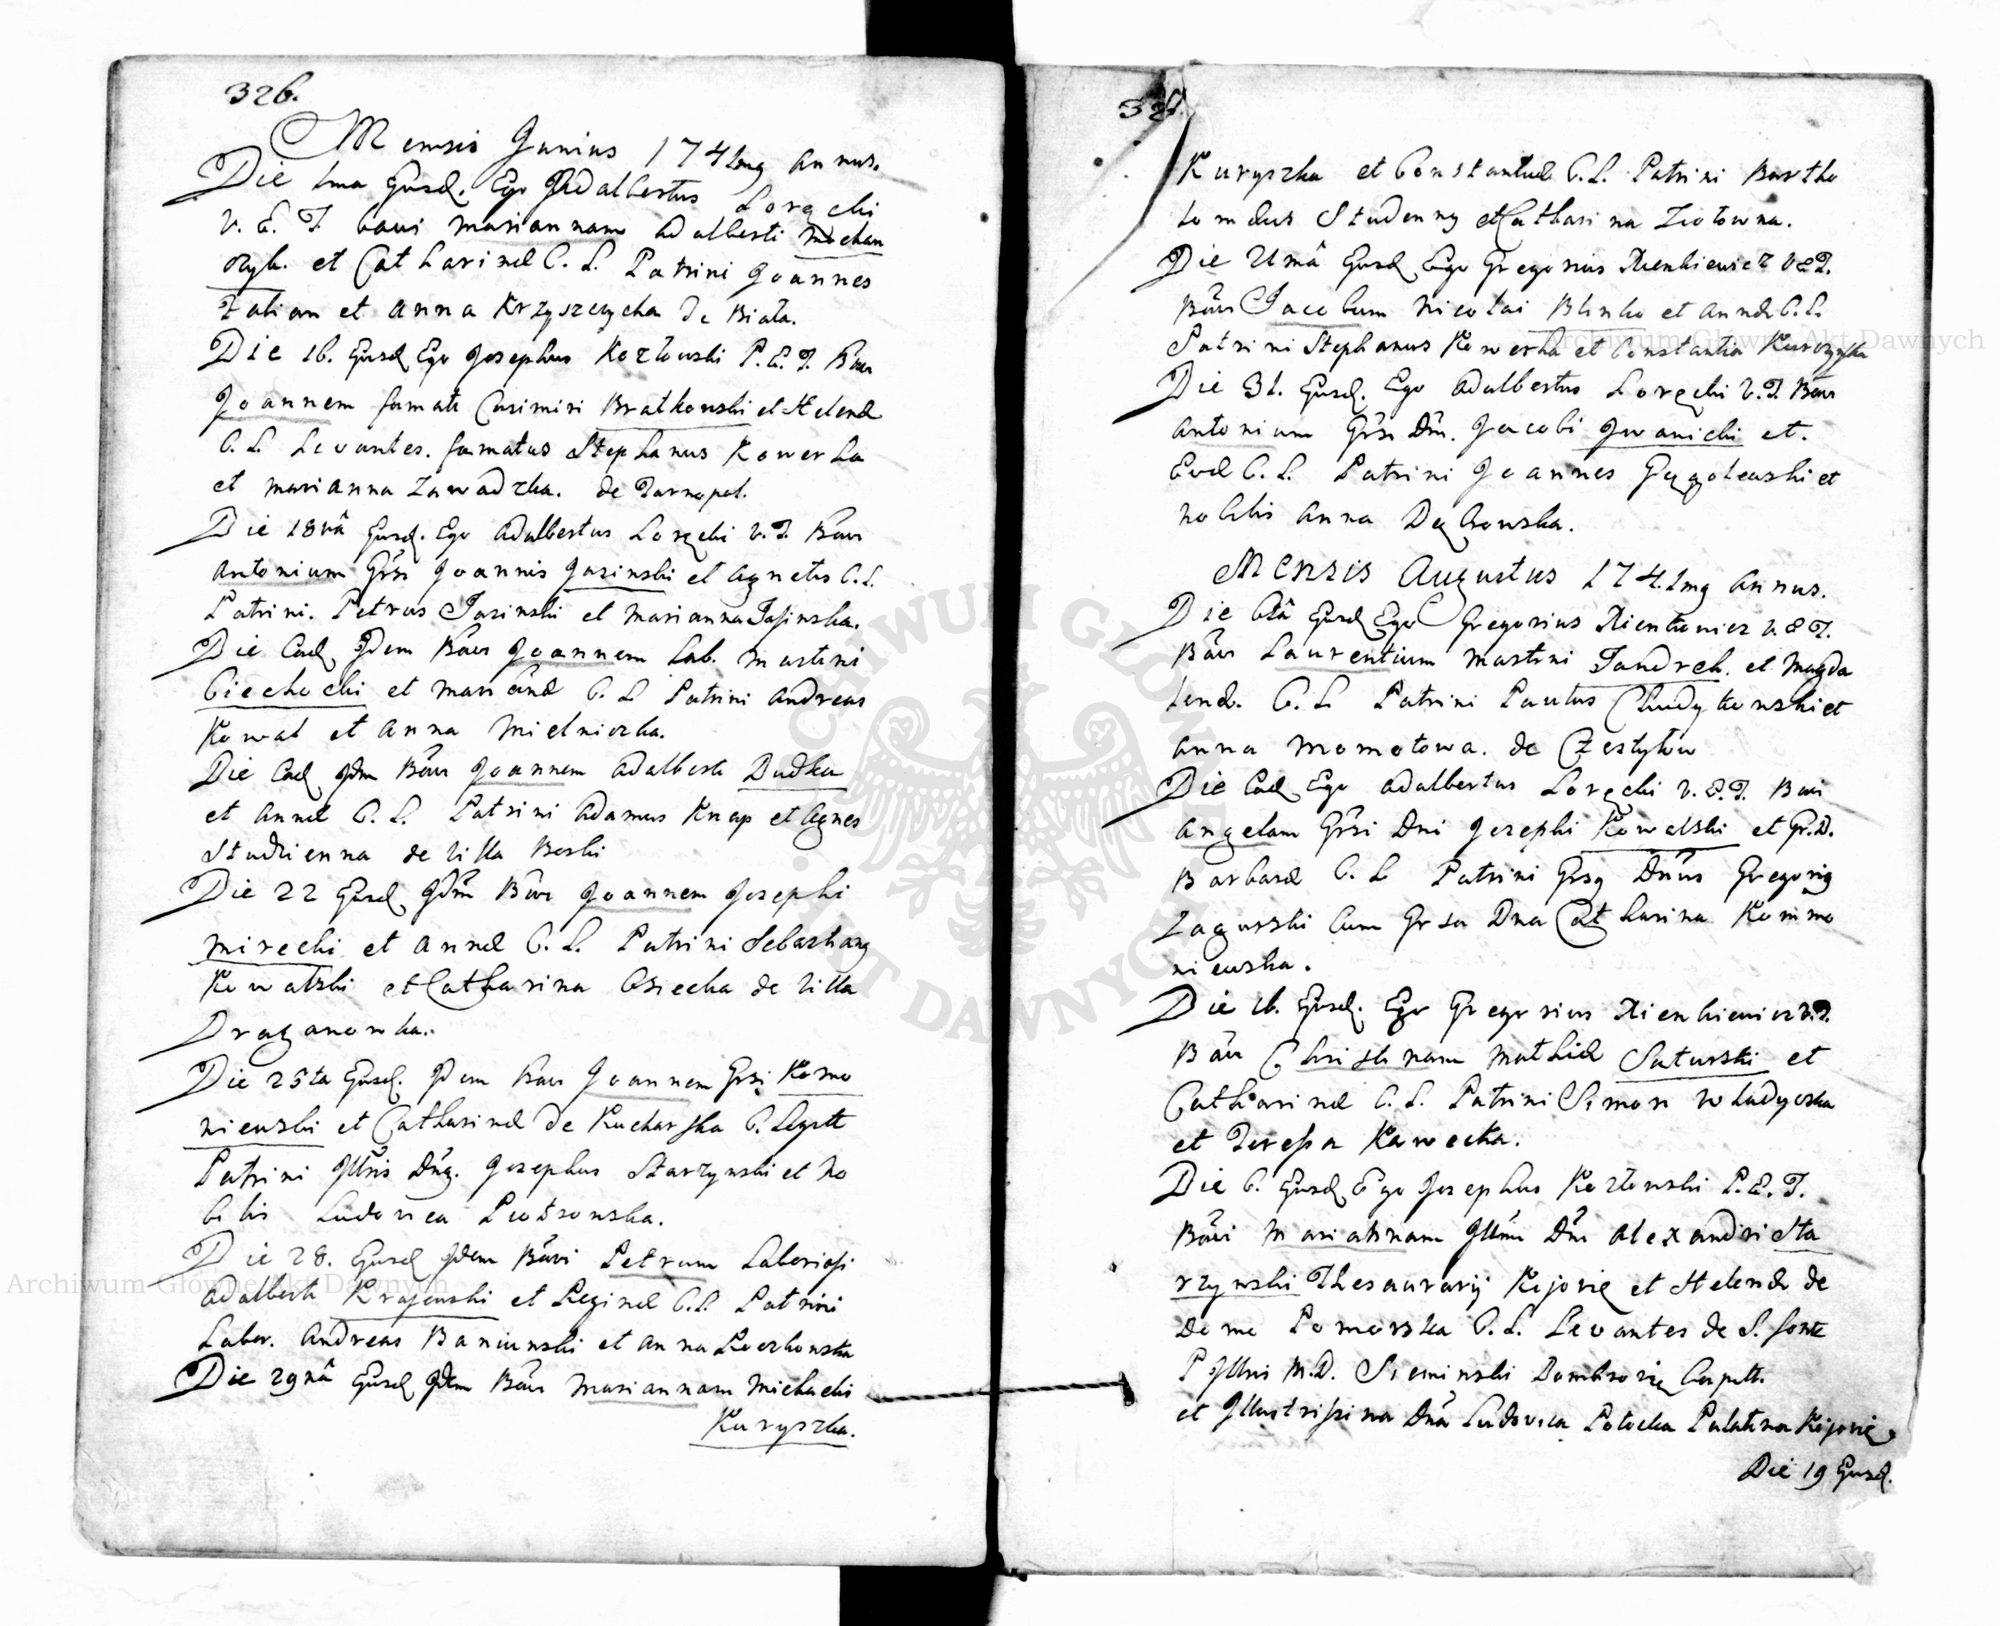 326.
Mensis Junius 1741mq annus.
Die 1ma Ejusd. Ego Adalbertus Lorecki
V. E. T. bavi Mariannam Adalberti Mochan
czyk. et Catharinae C. L. Patrini Joannes
Fabian et Anna Krzyszczycha de Biała.
Die 16. Ejusd Ego Josephus Kozłowski P. E. T. Bavi
Joannem famati Casimiri Bratkowski et Helenae
C. L. Levantes. famatus Stephanus Kowerka
et Marianna Zawadzka. de Tarnopol.
Die 18vâ Ejusd. Ego Adalbertus Lorecki V. T. Bavi
Antonium Grsi Joannis Jasinski et Agnetis C. L.
Patrini. Petrus Jasinski et Marianna Jasinska.
Die Ead Idem Bavi Joannem Lab. Martini
Ciechocki et Mariannae C. L. Patrini Andreas
Kowal et Anna Mielniczka.
Die Ead Idm Bavi Joannem Adalberti Dudka
et Annae C. L. Patrini Adamus Knap et Agnes
Studzienna de Villa Borki
Die 22 Ejusd Idm Bavi Joannem Josephi
Mirecki et Annae C. L. Patrini Sebastianq
Kowalski et Catharina Osiecka de Villa
Draganowka.
Die 25ta Ejusd. Idem Bavi Joannem Grsi Komo
niewski et Catharinae de Kucharska C. Legitt
Patrini Illris Dnq. Josephus Starzynski et No
bilis Ludovica Piotrowska.
Die 28. Ejusd Idem Bavi Petrum Laboriosi
Adalberti Krajewski et Reginae C. L. Patrini
Labor. Andreas Baniunski et Anna Roczkowska
Die 29nâ Ejusd Idm Bavi Mariannam Michaelis
Kuryszka.
327.
Kuryszka et Constantiae C. L. Patrini Bartho
lomaeus Studenny et Catharina Ziotowna.
Die 21mâ Ejusd Ego Gregorius Xienkiewicz V E T.
Bavi Jacobum Nicolai Blinko et Annae C. L.
Patrini Stephanus Kowerka et Constantia Kuryszka
Die 31. Ejusd. Ego Adalbertus Lorecki V. T. Bavi
Antonium Grsi Dni. Jacobi Iwanicki et.
Evae C. L. Patrini Joannes Gągolewski et
Nobilis Anna Dębowska.
Mensis Augustus 174.1mq Annus.
Die 6tâ Ejusd Ego Gregorius Xienkiewicz V. E T.
Bavi Laurentium Martini Jandreh. et Magda
lenae. C. L. Patrini Paulus Chudykowski et
Anna Momotowa. de Czestyłow
Die Ead Ego Adalbertus Lorecki V. E. T. Bavi
Angelam Grsi Dni Josephi Kowalski et Gr. D.
Barbarae C. L. Patrini Grsq Dnus Gregoriq
Zagurski cum Grsa Dna Catharina Kommo
niewska.
Die 16. Ejusd. Ego Gregorius Xienkiewicz V. T.
Bavi Christinam Mathiae Saturski et
Catharinae C. L. Patrini Simon Władyczka
et Teressa Kawecka.
Die 6. Ejusd Ego Josephus Kozłowski P. E. T.
Bavi Mariannam Illmi Dni Alexandri Sta
rzynski Thesaurarij Kijoviae et Helenae de
Domo Pomorska C. L. Levantes de S. fonte
P Illris M. D. Sieminski Dombrovie Capitt.
et Illustrissima Dna Ludovica Potocka Palatina Kijoviae
Die 19 Ejusd.
Archiwum Główne Akt Dawnych
Archiwum Główne Akt Dawnych
ARCHIWUM GŁÓWNE • AKT DAWNYCH •